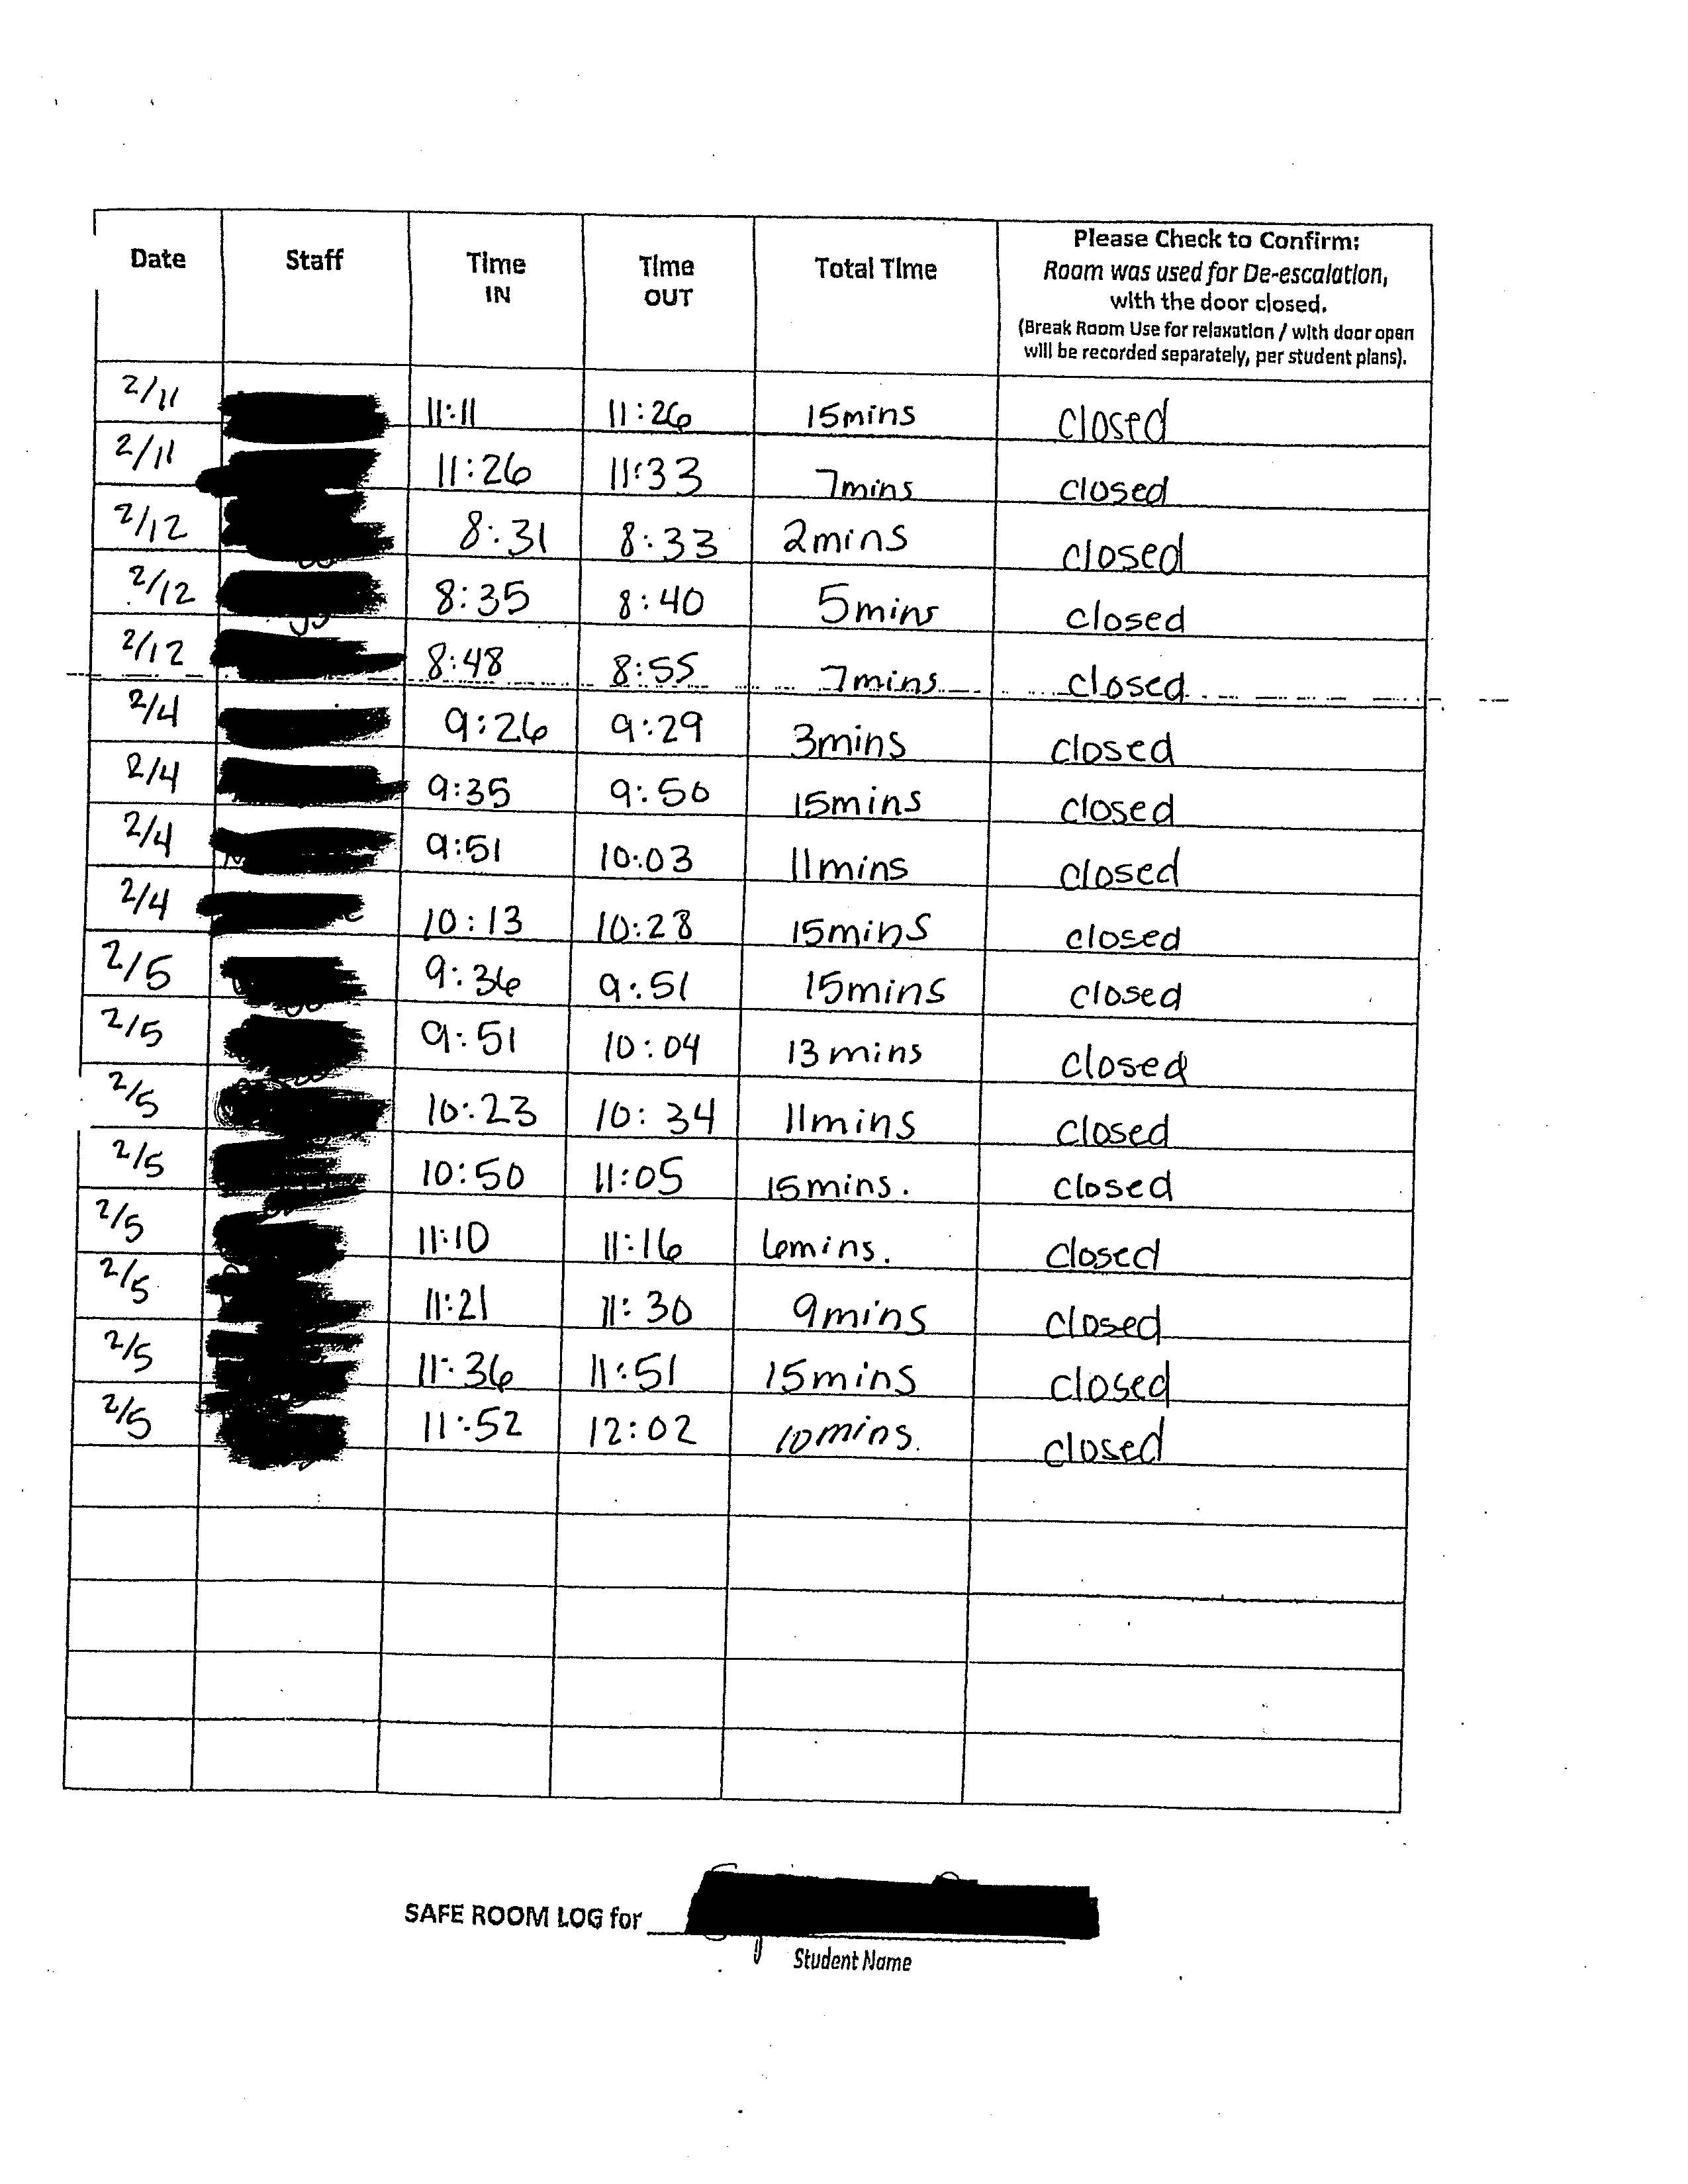 Date Staff Time IN Time OUT Total Time Please Check to Confirm:
Room was used for De-escalation,
with the door closed.
(Break Room Use for relaxation / with door open
will be recorded separately, per student plans).
2/11 11:11 11:26 15mins closed
2/11 11:26 11:33 7mins closed
2/12 8:31 8:33 2mins closed
2/12 8:35 8:40 5mins closed
2/12 8:48 8:55 7mins closed
2/4 9:26 9:29 3mins closed
2/4 9:35 9:50 15mins closed
2/4 9:51 10:03 11mins closed
2/4 10:13 10:28 15mins closed
2/5 9:36 9:51 15mins closed
2/5 9:51 10:04 13mins closed
2/5 10:23 10:34 11mins closed
2/5 10:50 11:05 15mins. closed
2/5 11:10 11:16 6mins. closed
2/5 11:21 11:30 9mins closed
2/5 11:36 11:51 15mins closed
2/5 11:52 12:02 10mins. closed
SAFE ROOM LOG for
Student Name